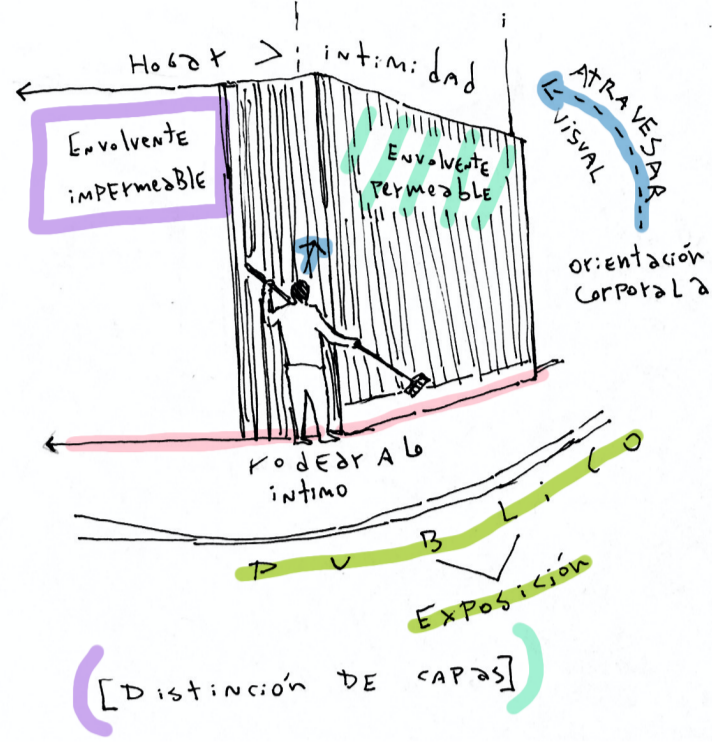 Hogar > intimidad
i
Envolvente
impermeable
Envolvente
permeable
ATRAVESAR
VISUAL
orientación
corporal a
rodear A lo
íntimo
PUBLiCO
Exposición
[Distinción DE CAPAS]